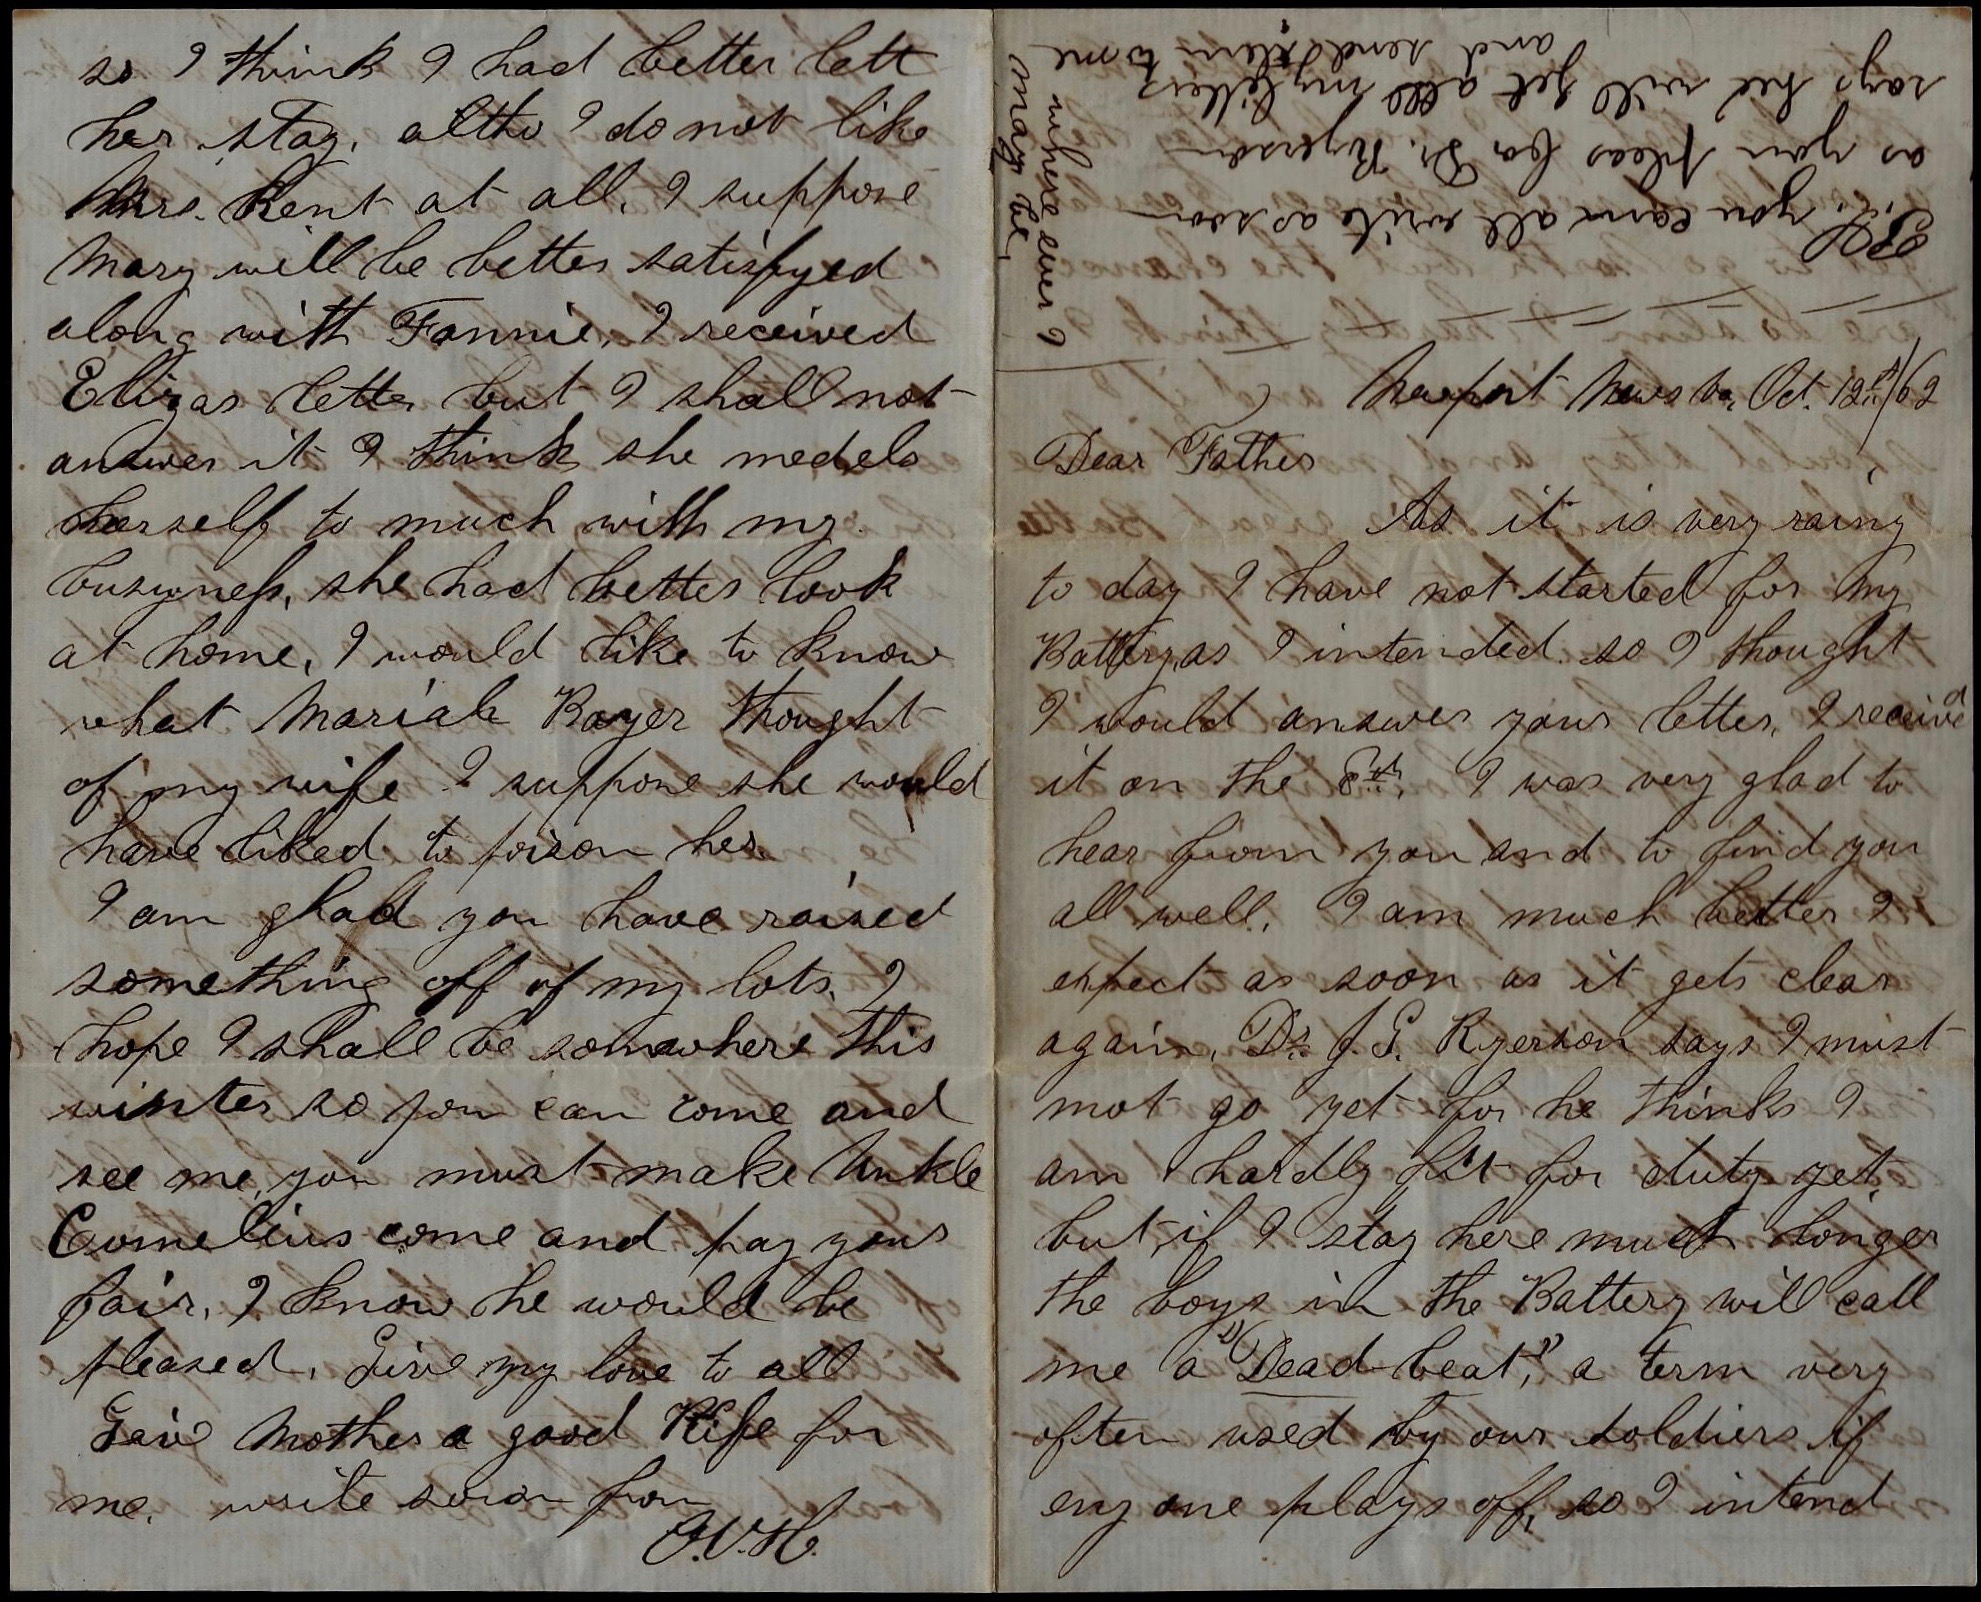 so I think I had better lett
her stay, altho I do not like
Mrs. Kent at all, I suppose
Mary will be better satisfyed
along with Fannie, I received
Elizas letter but I shall not
answer it I think she medels
herself to much with my
busyness, she had better look
at home, I would like to know
what Mariah Boyer thought
of my wife I suppose she would
have liked to poison her
I am glad you have raised
something off of my lots, I
hope I shall be somewhere this
winter so you can come and
see me, you must make Unkle
Cornelius come and pay your
fair, I know he would be
pleased, Give my love to all
Give Mother a good Kife for
me, write soon from
J.V.H.
Newport News Va, Oct. 12th/62
Dear Father
As it is very rainy
to day I have not started for my
Battery, as I intended so I thought
I would answer your letter, I received
it on the 8th, I was very glad to
hear from you and to find you
all well, I am much better I
expect as soon as it gets clear
again, Dr. J. G. Ryerson says I must
not go yet for he thinks I
am hardly fit for duty yet,
but if I stay here much longer
the boys in the Battery will call
me a "Dead-beat," a term very
often used by our soldiers if
eny one plays off, so I intend
P.S. you cann all write as soon
as you pleas for Dr. Ryerson
says hee will get all my letters
and send them to me
where ever I
may be,